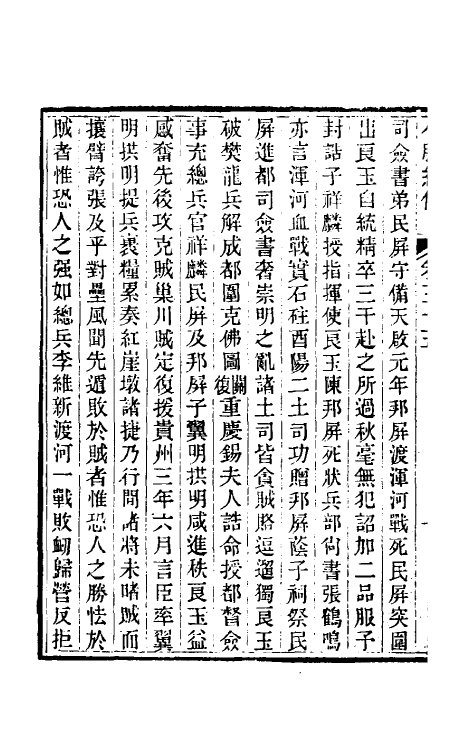 司僉書弟民屏守備天啟元年邦屏渡渾河戰死民屏突圍
出良玉自統精卒三千赴之所過秋毫無犯詔加二品服予
封誥子祥麟授指揮使良玉陳邦屏死狀兵部尙書張鶴鳴
亦言渾河血戰實石砫酉陽二土司功贈邦屏蔭子祠祭民
屏進都司僉書奢崇明之亂諸土司皆貪賊賂逗遛獨良玉
破樊龍兵解成都圍克佛圖關復重慶錫夫人誥命授都督僉
事充總兵官祥麟民屏及邦屏子翼明拱明咸進秩良玉益
感奮先後攻克賊巢川賊定復援貴州三年六月言臣率翼
明拱明提兵裹糧累奏紅崖墩諸捷乃行間諸將未睹賊而
攘臂誇張及乎對壘風聞先遁敗於賊者惟恐人之勝怯於
賊者惟恐人之强如總兵李維新渡河一戰敗衂歸營反拒